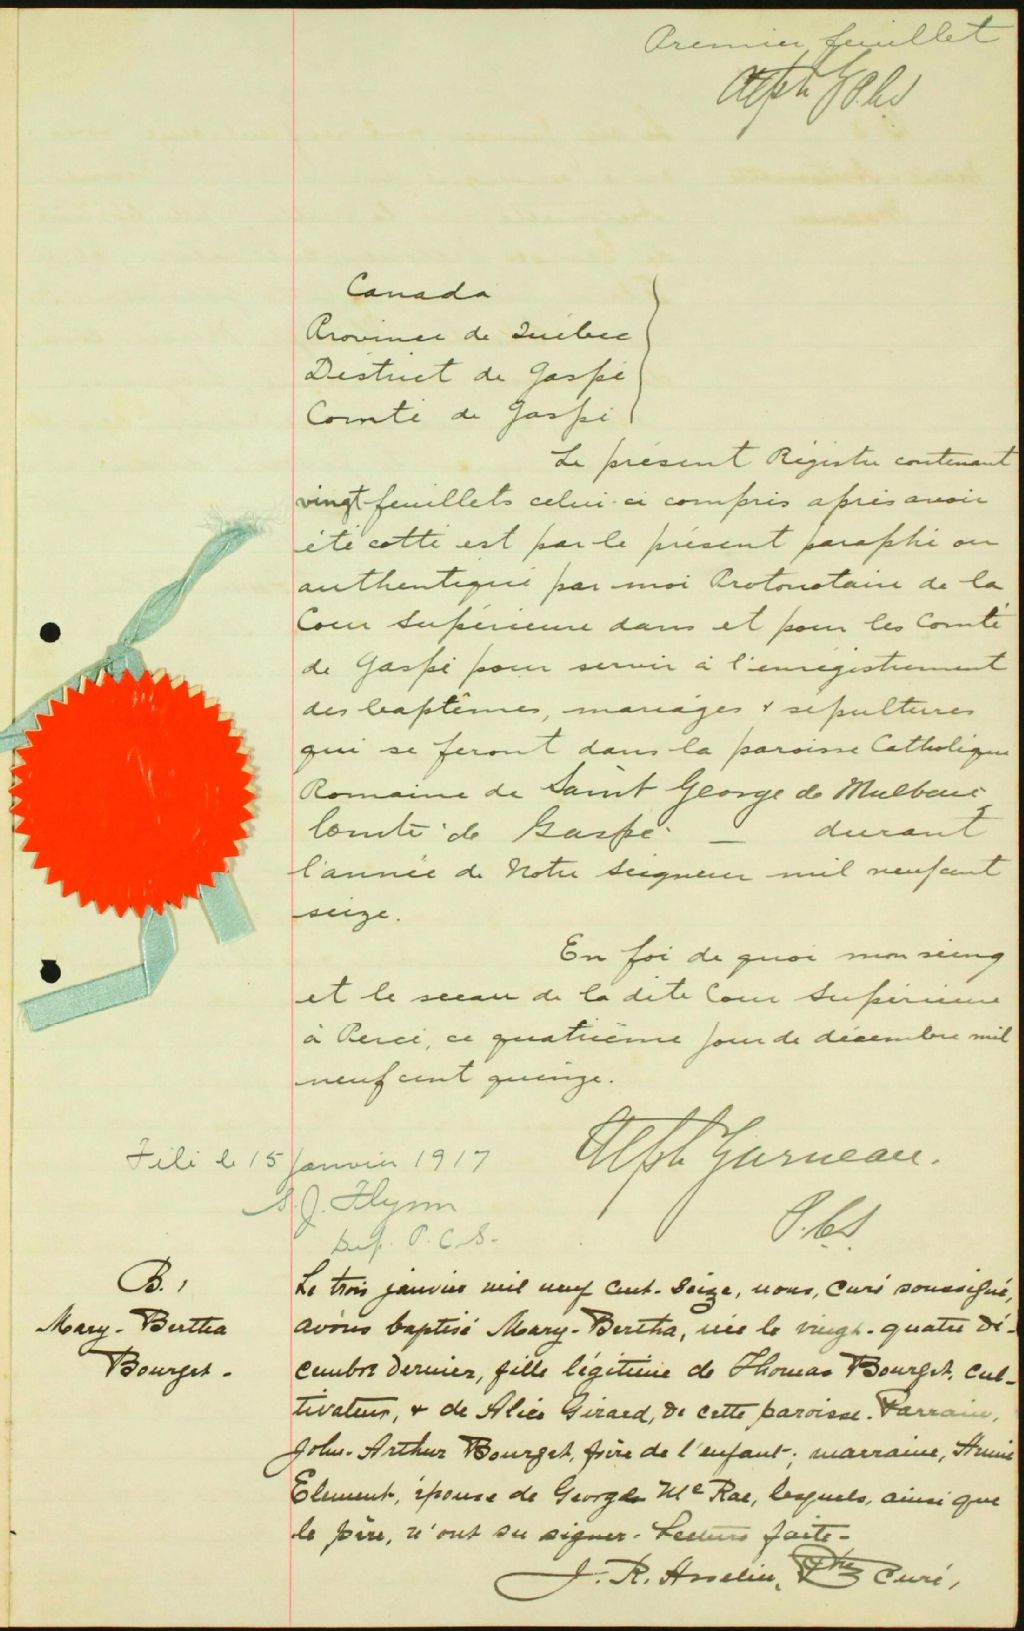 Premier feuillet
Alph G P.C.S
Canada
Province de Québec
District de Gaspé
Comté de Gaspé
Le présent Régistre contenant
vingt feuillets celui-ci compris après avoir
été cotté est par le présent paraphé ou
authentiqué par moi Protonotaire de la
Cour Supérieure dans et pour les Comté
de Gaspé pour servir à l'enregistrement
des baptêmes, mariages & sépultures
qui se feront dans la paroisse Catholique
Romaine de Saint George de Malbaie
Comté de Gaspé — durant
l'année de Notre Seigneur mil neuf cent
seize.
En foi de quoi mon seing
et le sceau de la dite Cour Supérieure
à Percé, ce quatrième jour de décembre mil
neuf cent quinze.
Alph Garneau.
P.C.S.
Filé le 15 Janvier 1917
S. J. Flynn
Dep. P.C.S.
B. 1
Mary-Bertha
Bourget.
Le trois janvier mil neuf cent-seize, nous, curé soussigné,
avons baptisé Mary-Bertha, née le vingt-quatre dé-
cembre dernier, fille légitime de Thomas Bourget, cul-
tivateur, & de Alice Girard, de cette paroisse. Parrain,
John-Arthur Bourget, frère de l'enfant; marraine, Annie
Element, épouse de George Mc Rae, lesquels, ainsi que
le père, n'ont su signer. Lecture faite.
J. R. Asselin, Ptre Curé,